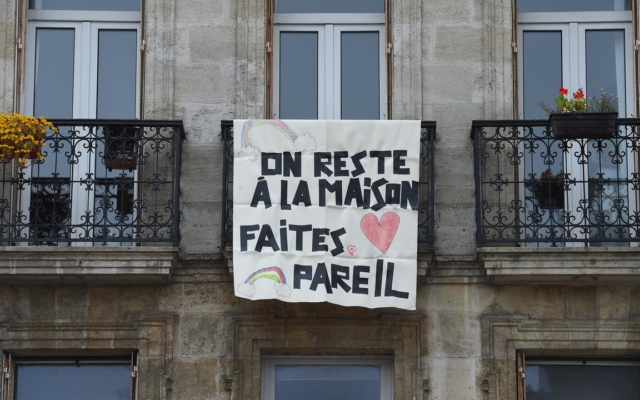 ON RESTE
À LA MAiSON
FAITES
PAREIL